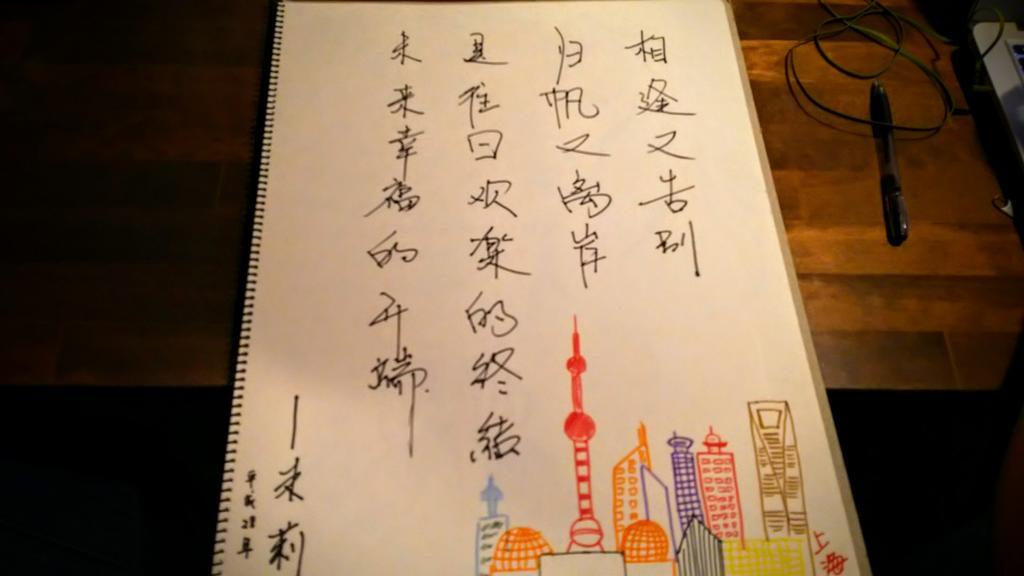 相逢又告别
归帆又离岸
是往日欢楽的终结
未来幸福的开端
—米莉
平成28年
上海